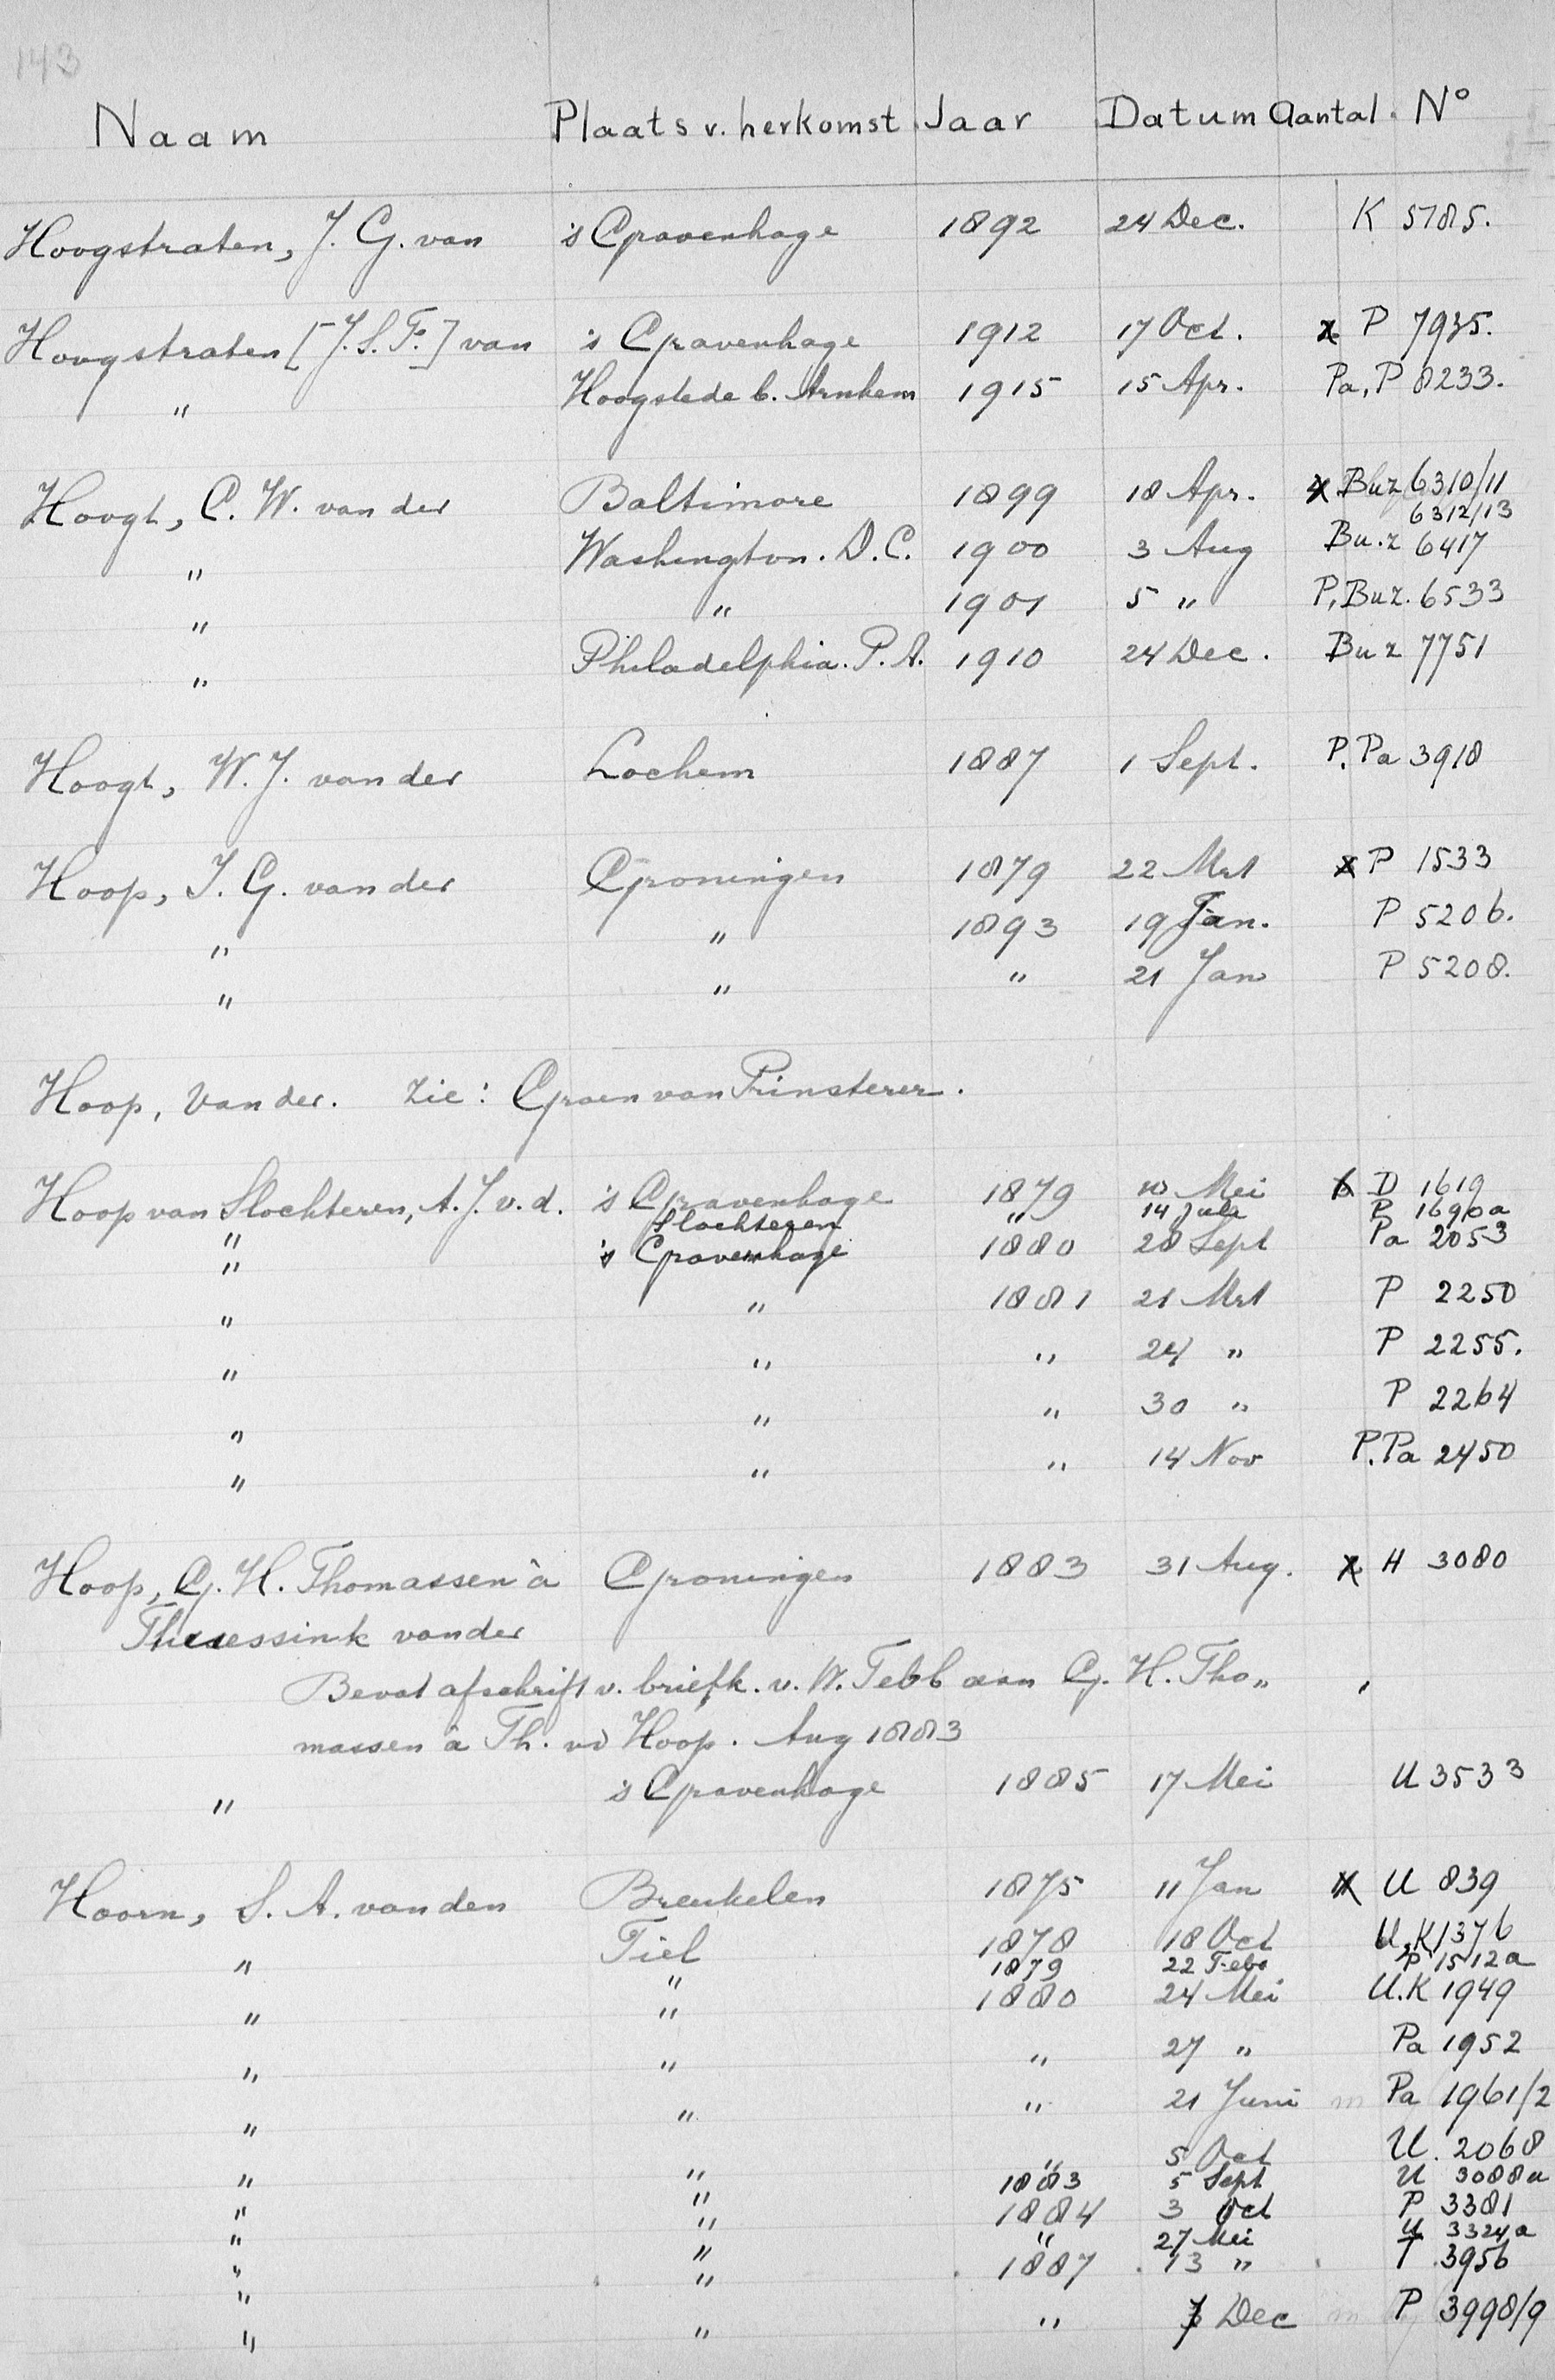 143
Naam Plaats v. herkomst Jaar Datum Aantal. N°
Hoogstraten, J. G. van 's Gravenhage 1892 24 Dec. K 5785.
Hoogstraten [J. S. F.] van 's Gravenhage 1912 17 Oct. P 7935.
" Hoogstede b. Arnhem 1915 15 Apr. Pa, P 8233.
Hoogt, C. W. van der Baltimore 1899 18 Apr. Buz 6310/11
6312/13
" Washington. D. C. 1900 3 Aug Bu.z 6417
" " 1901 5 " P, Buz. 6533
" Philadelphia. P. A. 1910 24 Dec. Buz 7751
Hoogt, W. J. van der Lochem 1887 1 Sept. P. Pa 3918
Hoop, J. G. van der Groningen 1879 22 Mrt P 1533
" " 1893 19 Jan. P 5206.
" " " 21 Jan P 5208.
Hoop, van der. Zie: Groen van Prinsterer.
Hoop van Slochteren, A. J. v. d. 's Gravenhage 1879 10 Mei D 1619
" Slochteren " 14 Juli P 1690a
" 's Gravenhage 1880 28 Sept Pa 2053
" " 1881 21 Mrt P 2250
" " " 24 " P 2255.
" " " 30 " P 2264
" " " 14 Nov P. Pa 2450
Hoop, G. H. Thomassen à Groningen 1883 31 Aug. H 3080
Thuessink van der
Bevat afschrift v. briefk. v. W. Tebb aan G. H. Tho"
massen à Th. vd Hoop. Aug 1883
" 's Gravenhage 1885 17 Mei U 3533
Hoorn, S. A. van den Breukelen 1875 11 Jan U 839
" Tiel 1878 18 Oct U. K 1376
" 1879 22 Febr P 1512a
" " 1880 24 Mei U. K 1949
" " " 27 " Pa 1952
" " " 21 Juni m Pa 1961/2
" " " 5 Oct U. 2068
" " 1883 5 Sept U 3088a
" " 1884 3 Oct P 3381
" " " 27 Mei U 3324a
" " 1887 13 " T 3956
" " " Dec m P 3998/9